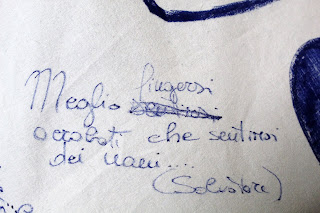 Meglio fingersi
acrobati che sentirsi
dei nani....
(Salvatore)